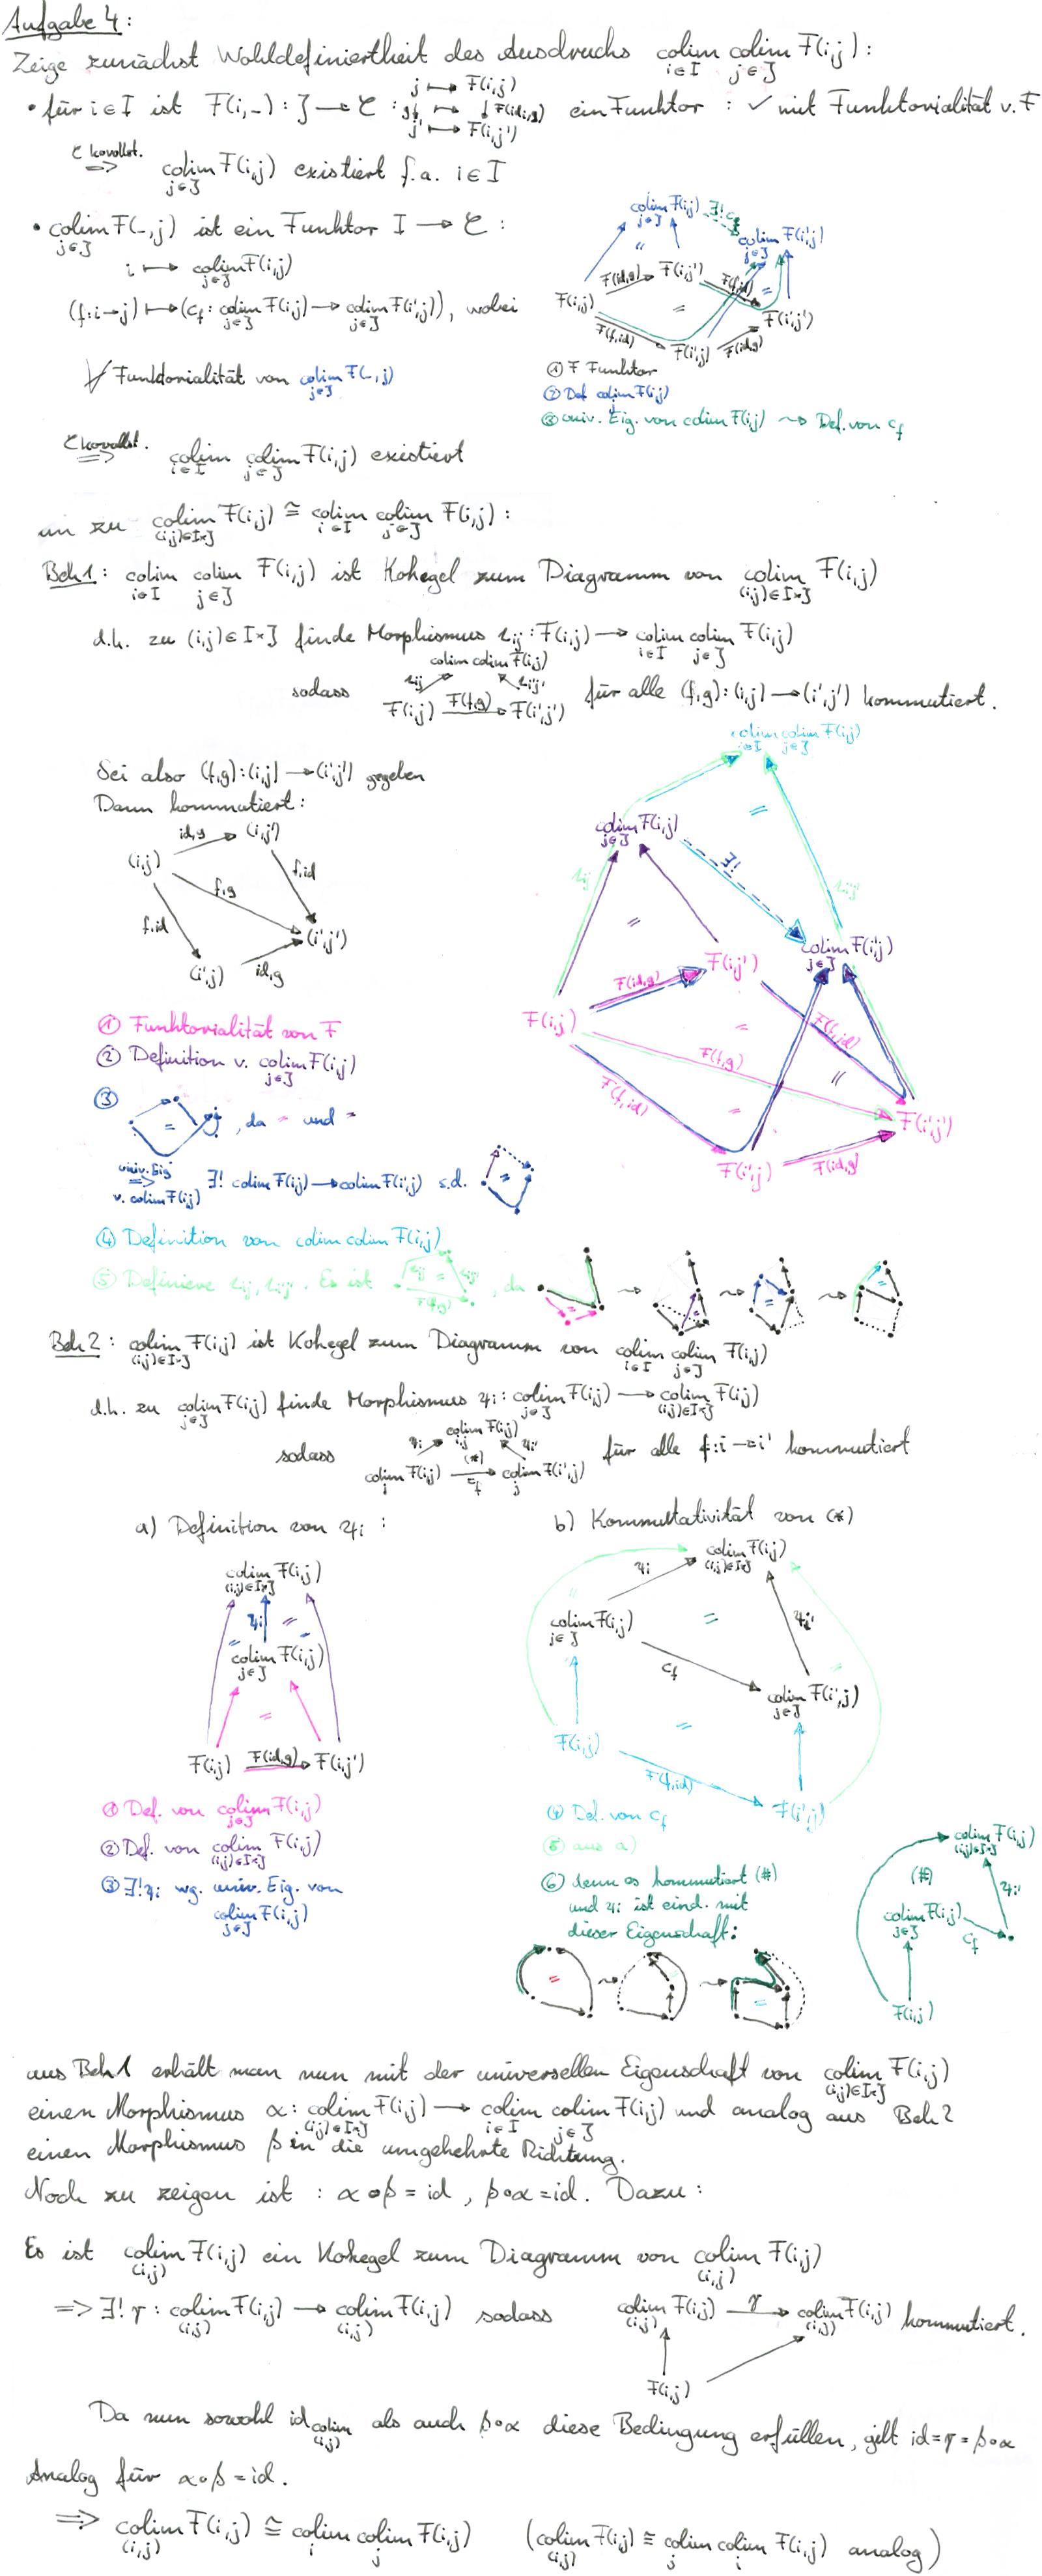 Aufgabe 4:
Zeige zunächst Wohldefiniertheit des Ausdrucks colim colim F(i,j):
i∈I j∈J
• für i∈I ist F(i,–): J → C : j ↦ F(i,j) ein Funktor : ✓ mit Funktorialität v. F
g↓ ↦ ↓F(id_i,g)
j' ↦ F(i,j')
C kovollst. ⇒ colim F(i,j) existiert f.a. i∈I
j∈J
• colim F(–,j) ist ein Funktor I → C :
j∈J
i ↦ colim F(i,j)
j∈J
(f: i→j) ↦ (c_f: colim F(i,j) → colim F(i',j)), wobei
j∈J j∈J
colim F(i,j) ∃! c_f colim F(i',j)
j∈J j∈J
F(i,j) F(id,g) F(i,j') F(f,id) F(i',j')
F(f,id) F(i',j) F(id,g)
① F Funktor
② Def colim F(i,j)
③ univ. Eig. von colim F(i,j) ⇝ Def. von c_f
Funktorialität von colim F(–,j)
j∈J
C kovollst. ⇒ colim colim F(i,j) existiert
i∈I j∈J
zu colim F(i,j) ≅ colim colim F(i,j):
(i,j)∈I×J i∈I j∈J
Beh 1: colim colim F(i,j) ist Kokegel zum Diagramm von colim F(i,j)
i∈I j∈J (i,j)∈I×J
d.h. zu (i,j)∈I×J finde Morphismus ι_ij: F(i,j) → colim colim F(i,j)
i∈I j∈J
colim colim F(i,j)
ι_ij ι_i'j'
sodass F(i,j) F(f,g) F(i',j') für alle (f,g): (i,j) → (i',j') kommutiert.
Sei also (f,g): (i,j) → (i',j') gegeben
Dann kommutiert:
id,g (i,j')
(i,j) f,id
f,g
f,id (i',j')
(i',j) id,g
colim colim F(i,j)
i∈I j∈J
colim F(i,j)
j∈J
∃!
ι_ij ι_i'j'
colim F(i',j)
j∈J
F(i,j) F(id,g) F(i,j')
F(f,g) F(f,id)
F(f,id) F(i',j')
F(i',j) F(id,g)
① Funktorialität von F
② Definition v. colim F(i,j)
j∈J
③ = , da = und =
univ. Eig ⇒ v. colim F(i,j) ∃! colim F(i,j) → colim F(i',j) s.d.
④ Definition von colim colim F(i,j)
⑤ Definiere ι_ij, ι_i'j'. Es ist ι_ij = ι_i'j' F(f,g) , da
Beh 2: colim F(i,j) ist Kokegel zum Diagramm von colim colim F(i,j)
(i,j)∈I×J i∈I j∈J
d.h. zu colim F(i,j) finde Morphismus ψ_i: colim F(i,j) → colim F(i,j)
j∈J j∈J (i,j)∈I×J
colim F(i,j)
ij
ψ_i (*) ψ_i'
sodass colim F(i,j) c_f colim F(i',j) für alle f: i → i' kommutiert
j j
a) Definition von ψ_i :
colim F(i,j)
(i,j)∈I×J
ψ_i
colim F(i,j)
j∈J
F(i,j) F(id,g) F(i,j')
① Def. von colim F(i,j)
j∈J
② Def. von colim F(i,j)
(i,j)∈I×J
③ ∃! ψ_i wg. univ. Eig. von
colim F(i,j)
j∈J
b) Kommutativität von (*)
colim F(i,j)
(i,j)∈I×J
ψ_i
colim F(i,j)
j∈J
ψ_i'
c_f
colim F(i',j)
j∈J
F(i,j)
F(f,id)
F(i',j)
④ Def. von c_f
⑤ aus a)
⑥ denn es kommutiert (#)
und ψ_i ist eind. mit
dieser Eigenschaft:
colim F(i,j)
(i,j)∈I×J
(#)
ψ_i'
colim F(i,j)
j∈J
c_f
F(i,j)
aus Beh 1 erhält man nun mit der universellen Eigenschaft von colim F(i,j)
(i,j)∈I×J
einen Morphismus α: colim F(i,j) → colim colim F(i,j) und analog aus Beh 2
(i,j)∈I×J i∈I j∈J
einen Morphismus β in die umgekehrte Richtung.
Noch zu zeigen ist : α∘β = id , β∘α = id. Dazu :
Es ist colim F(i,j) ein Kokegel zum Diagramm von colim F(i,j)
(i,j) (i,j)
⇒ ∃! γ : colim F(i,j) → colim F(i,j) sodass colim F(i,j) γ colim F(i,j) kommutiert.
(i,j) (i,j) (i,j) (i,j)
F(i,j)
Da nun sowohl id colim als auch β∘α diese Bedingung erfüllen, gilt id = γ = β∘α
(i,j)
Analog für α∘β = id.
⇒ colim F(i,j) ≅ colim colim F(i,j) (colim F(i,j) ≅ colim colim F(i,j) analog)
(i,j) i j (i,j) j i